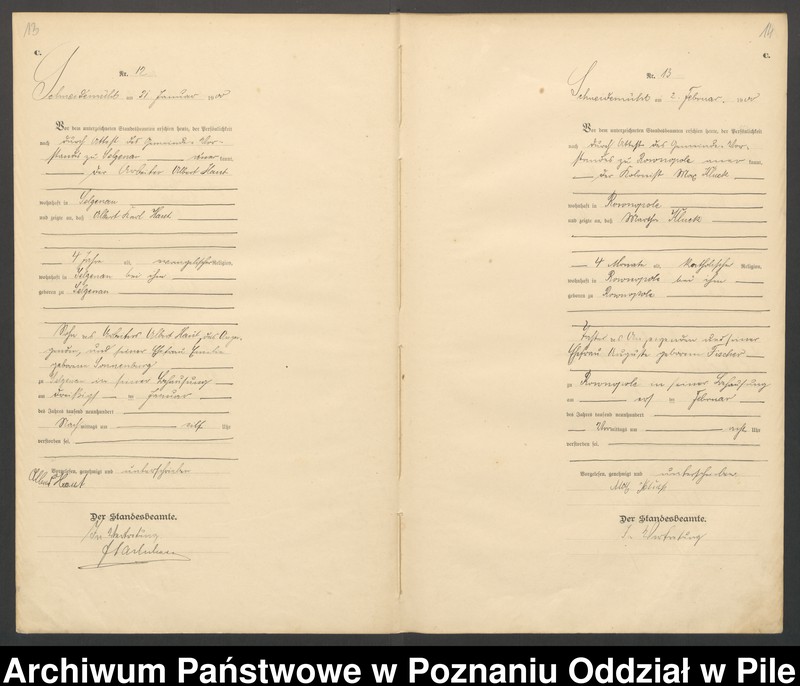 13
C.
Nr. 12
Schneidemühl am 31. Januar 1900
Vor dem unterzeichneten Standesbeamten erschien heute, der Persönlichkeit
nach durch Attest des Gemeinde-Vor-
standes zu Selgenau kannt,
der Arbeiter Albert Haut
wohnhaft in Selgenau
und zeigte an, daß Albert Karl Haut
4 Jahr alt, evangelischer Religion,
wohnhaft in Selgenau bei ihm
geboren zu Selgenau
Sohn des Arbeiters Albert Haut, des Anzei-
genden, und seiner Ehefrau Emilie
geborene Sonnenberg
zu Selgenau in seiner Behausung
am dreißigsten Januar
des Jahres tausend neunhundert
Nachmittags um elf Uhr
verstorben sei.
Vorgelesen, genehmigt und unterschrieben
Albert Haut
Der Standesbeamte.
In Vertretung
14
C.
Nr. 13
Schneidemühl am 2. Februar 1900
Vor dem unterzeichneten Standesbeamten erschien heute, der Persönlichkeit
nach durch Attest des Gemeinde-Vor-
standes zu Rownopole kannt,
der Kolonist Max Kluck
wohnhaft in Rownopole
und zeigte an, daß Martha Kluck
4 Monate alt, katholischer Religion,
wohnhaft in Rownopole bei ihm
geboren zu Rownopole
Tochter des Anzeigenden und seiner
Ehefrau Auguste geborene Fischer
zu Rownopole in seiner Behausung
am Februar
des Jahres tausend neunhundert
Vormittags um acht Uhr
verstorben sei.
Vorgelesen, genehmigt und unterschrieben
Der Standesbeamte.
In Vertretung
Archiwum Państwowe w Poznaniu Oddział w Pile